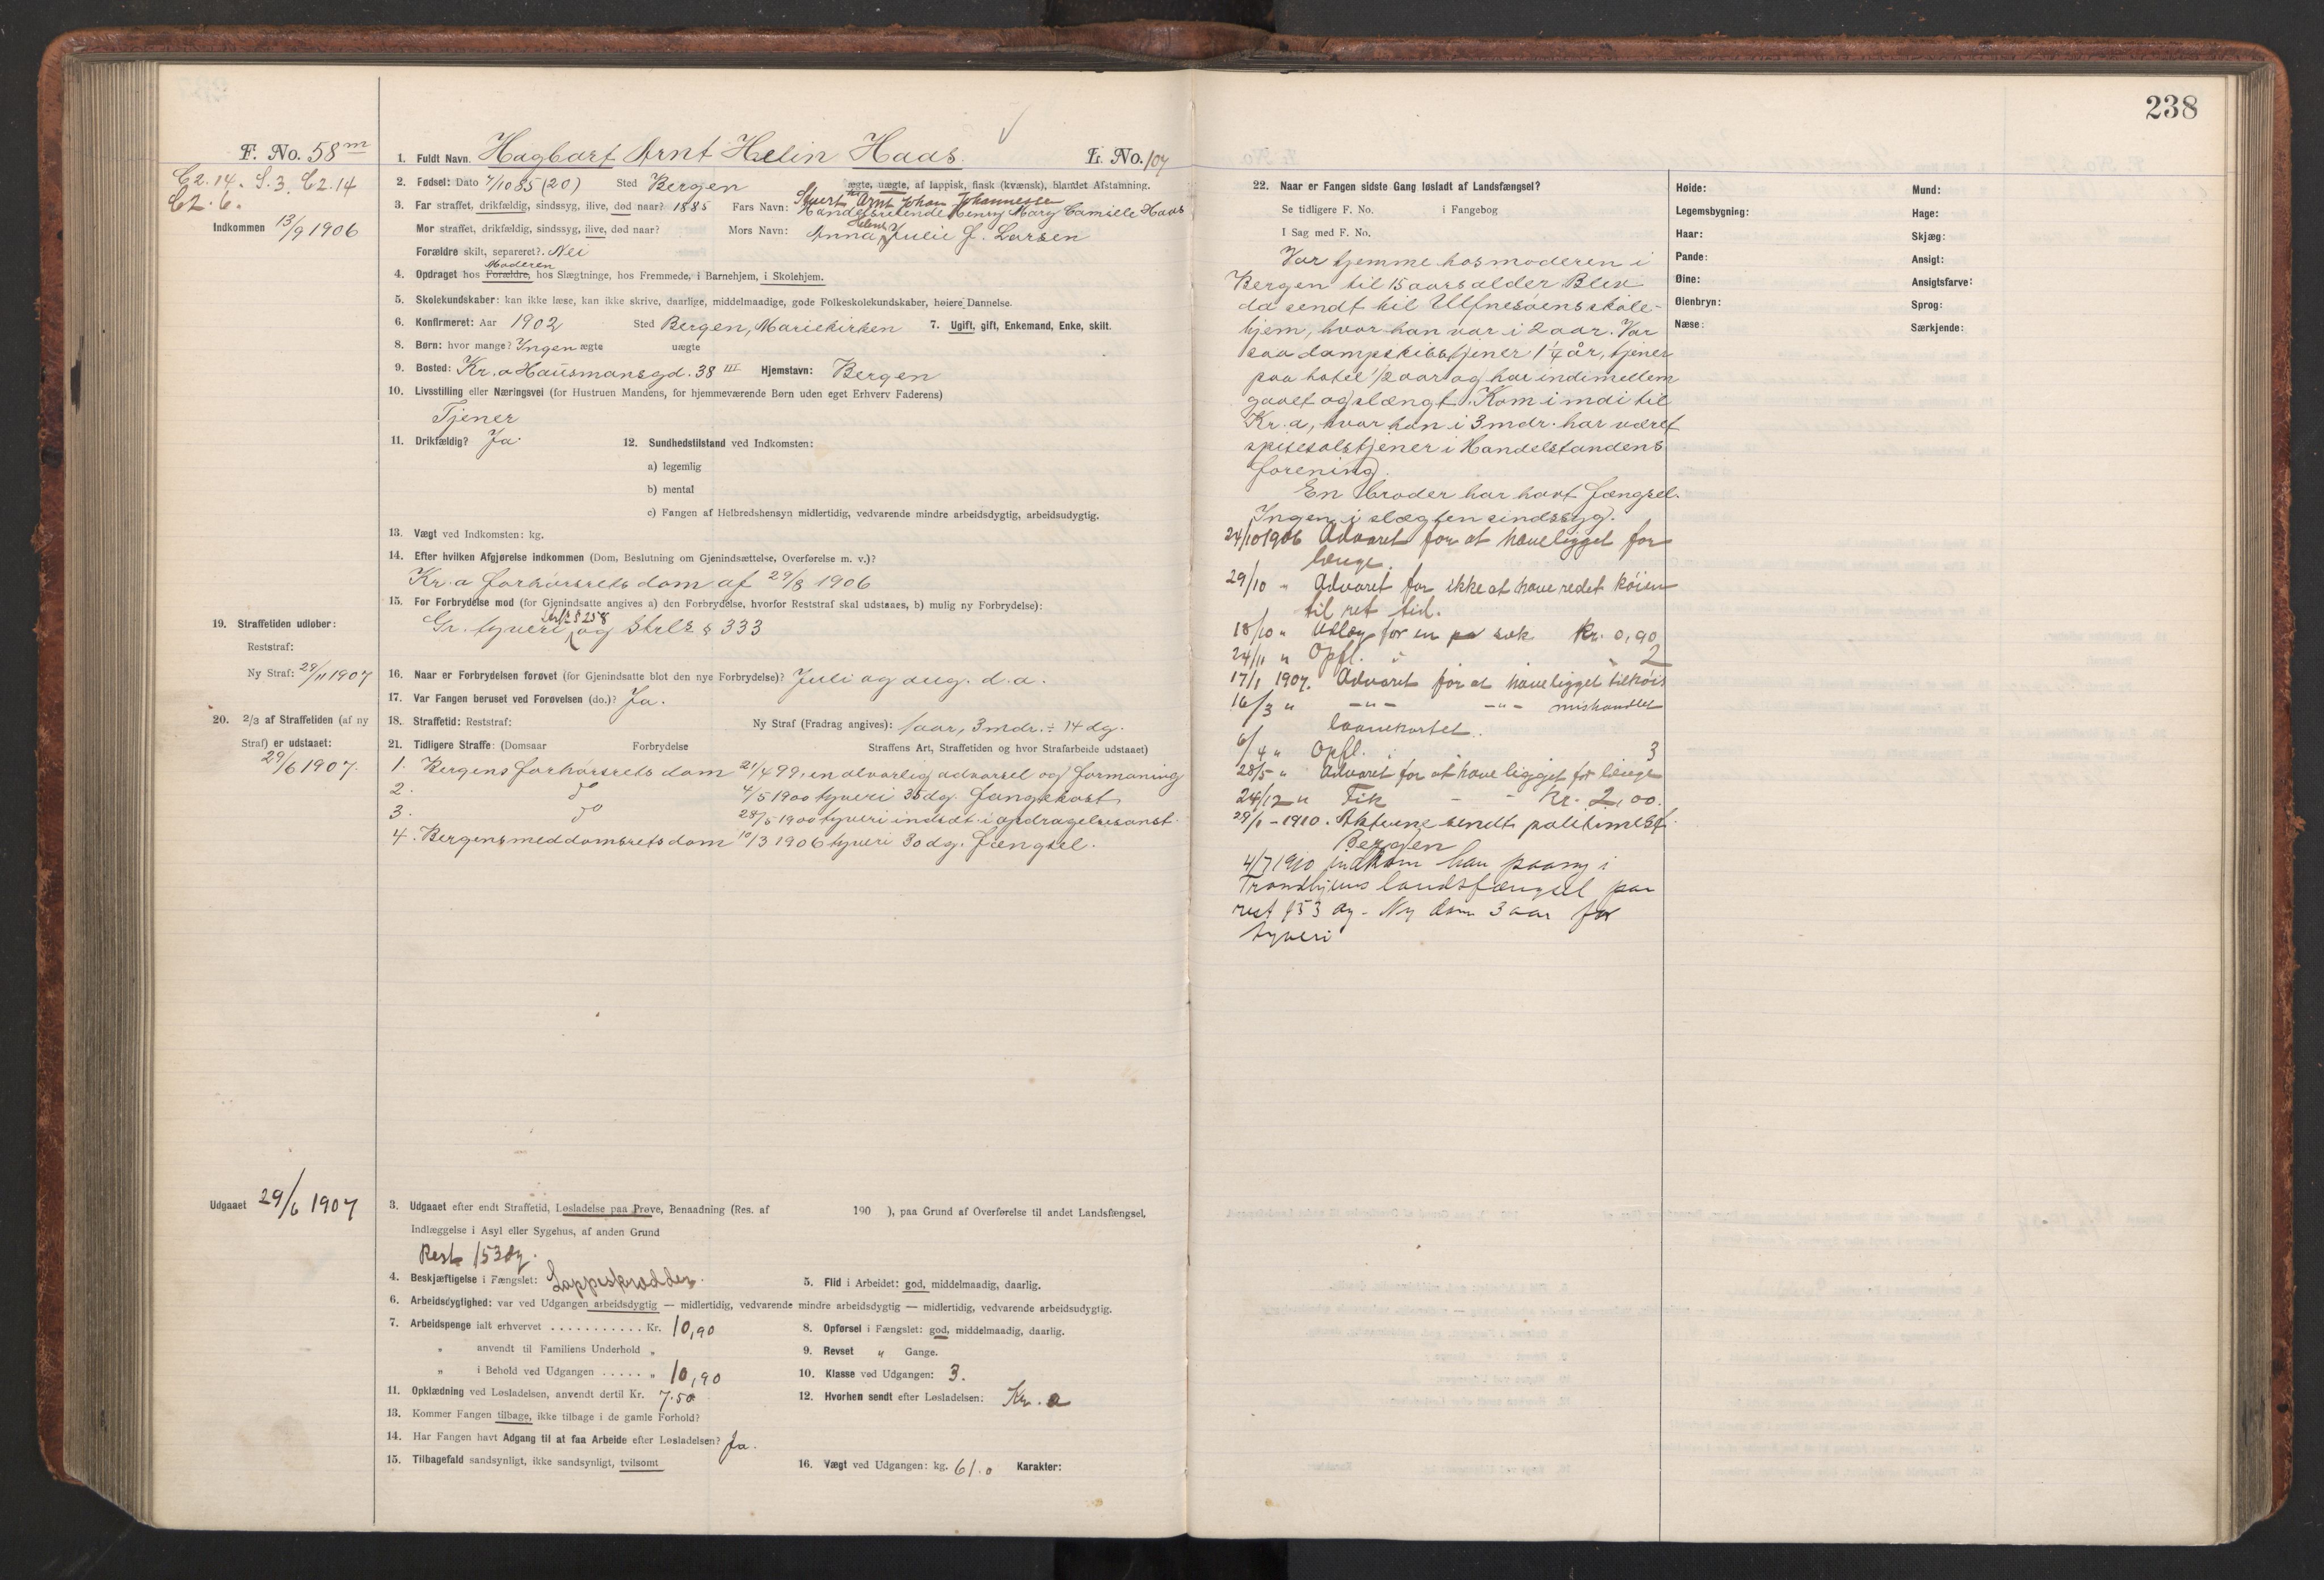 238
F. No. 58 m
C2. 14. S. 3. C2. 14
C2. 6.
Indkommen 13/9 1906
19. Straffetiden udløber:
Reststraf:
Ny Straf: 29/11 1907
20. 2/3 af Straffetiden (af ny
Straf) er udstaaet:
29/6 1907.
Udgaaet 29/6 1907
1. Fuldt Navn. Hagbart Arnt Helin Haas. L. No. 107
2. Fødsel: Dato 7/10 85 (20) Sted Bergen ægte, uægte, af lappisk, finsk (kvænsk), blandet Afstamning.
Arnt Johan Johannesse
3. Far straffet, drikfældig, sindssyg, ilive, død naar? 1885 Fars Navn: Handelsreisende Henry Mary Camille Haas
Mor straffet, drikfældig, sindssyg, ilive, død naar? Mors Navn: Anna Helene Julie J. Larsen
Forældre skilt, separeret? Nei
Moderen
4. Opdraget hos Forældre, hos Slægtninge, hos Fremmede, i Barnehjem, i Skolehjem.
5. Skolekundskaber: kan ikke læse, kan ikke skrive, daarlige, middelmaadige, gode Folkeskolekundskaber, høiere Dannelse.
6. Konfirmeret: Aar 1902 Sted Bergen, Mariekirken 7. Ugift, gift, Enkemand, Enke, skilt.
8. Børn: hvor mange? Ingen ægte uægte
9. Bosted: Kr.a Hausmansgd. 38 III Hjemstavn: Bergen
10. Livsstilling eller Næringsvei (for Hustruen Mandens, for hjemmeværende Børn uden eget Erhverv Faderens)
Tjener
11. Drikfældig? Ja. 12. Sundhedstilstand ved Indkomsten:
a) legemlig
b) mental
c) Fangen af Helbredshensyn midlertidig, vedvarende mindre arbeidsdygtig, arbeidsudygtig.
13. Vægt ved Indkomsten: kg.
14. Efter hvilken Afgjørelse indkommen (Dom, Beslutning om Gjenindsættelse, Overførelse m. v.)?
Kr.a forhørsrets dom af 29/8 1906
15. For Forbrydelse mod (for Gjenindsatte angives a) den Forbrydelse, hvorfor Reststraf skal udstaaes, b) mulig ny Forbrydelse):
Strfl § 258
Gr. tyveri og Strlk § 333
16. Naar er Forbrydelsen forøvet (for Gjenindsatte blot den nye Forbrydelse)? Juli og aug. d.a.
17. Var Fangen beruset ved Forøvelsen (do.)? Ja.
18. Straffetid: Reststraf: Ny Straf (Fradrag angives): 1 aar, 3 mdr. ÷ 14 dg.
21. Tidligere Straffe: (Domsaar Forbrydelse Straffens Art, Straffetiden og hvor Strafarbeide udstaaet)
1. Bergens forhørsrets dom 21/4 99, en alvorlig advarsel og formaning
2. do 4/5 1900 tyveri 35 dg. fangekost
3. do 28/5 1900 tyveri indsat i opdragelsesanst.
4. Bergens meddomsrets dom 10/3 1906 tyveri 30 dg. fængsel.
3. Udgaaet efter endt Straffetid, Løsladelse paa Prøve, Benaadning (Res. af 190 ), paa Grund af Overførelse til andet Landsfængsel,
Indlæggelse i Asyl eller Sygehus, af anden Grund
Rest 153 dg.
4. Beskjæftigelse i Fængslet: Lappeskrædder. 5. Flid i Arbeidet: god, middelmaadig, daarlig.
6. Arbeidsdygtighed: var ved Udgangen arbeidsdygtig — midlertidig, vedvarende mindre arbeidsdygtig — midlertidig, vedvarende arbeidsudygtig.
7. Arbeidspenge ialt erhvervet ........... Kr. 10,90 8. Opførsel i Fængslet: god, middelmaadig, daarlig.
" anvendt til Familiens Underhold " 9. Revset " Gange.
" i Behold ved Udgangen ..... " 10,90 10. Klasse ved Udgangen: 3.
11. Opklædning ved Løsladelsen, anvendt dertil Kr. 7.50 12. Hvorhen sendt efter Løsladelsen: Kr.a
13. Kommer Fangen tilbage, ikke tilbage i de gamle Forhold?
14. Har Fangen havt Adgang til at faa Arbeide efter Løsladelsen? Ja.
15. Tilbagefald sandsynligt, ikke sandsynligt, tvilsomt 16. Vægt ved Udgangen: kg. 61.0 Karakter:
22. Naar er Fangen sidste Gang løsladt af Landsfængsel?
Se tidligere F. No. i Fangebog
I Sag med F. No.
Var hjemme hos moderen i
Bergen til 15 aars alder Blev
da sendt til Ulfnesøens skole-
hjem, hvor han var i 2 aar. Var
saa dampskibstjener 1 1/4 år, tjener
paa hotel 1/2 aar og har indimellem
gaaet og slængt. Kom i mai til
Kr.a, hvor han i 3 mdr. har været
spisesalstjener i Handelstandens
forening.
En broder har havt fængsel.
Ingen i slægten sindssyg.
24/10 1906 Advaret for at have ligget for
længe.
29/10 " Advaret for ikke at have redet køien
til ret tid.
18/10 " Udlæg for en sæk Kr. 0,90
24/11 " Opfl. i 2
17/1 1907. Advaret for at have ligget tilkøis
16/3 " -"- -"- mishandlet
laanekortet.
6/4 " Opfl. i 3
28/5 " Advaret for at have ligget for længe
24/12 " Fik - - Kr. 2,00.
28/1 - 1910. Akterne sendt politimest.
Bergen
4/7 1910 indkom han paany i
Trondhjems landsfængsel paa
rest 153 dg - Ny dom 3 aar for
tyveri
Høide:
Legemsbygning:
Haar:
Pande:
Øine:
Øienbryn:
Næse:
Mund:
Hage:
Skjæg:
Ansigt:
Ansigtsfarve:
Sprog:
Særkjende: